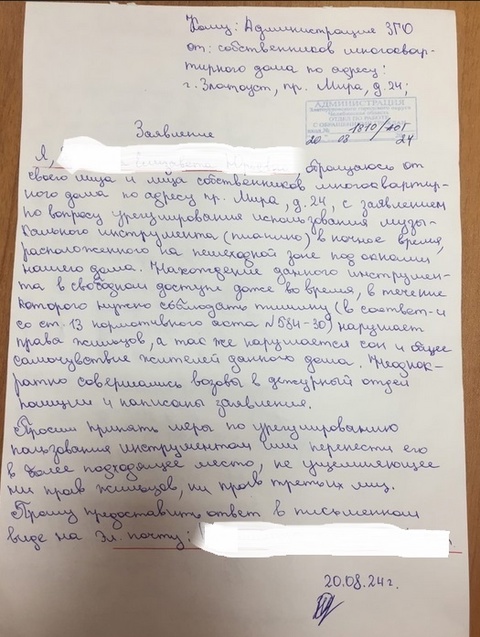 Кому: Администрация ЗГО
от: собственников многоквар-
тирного дома по адресу:
г. Златоуст, пр. Мира, д. 24;
АДМИНИСТРАЦИЯ
Златоустовского городского округа
Челябинская область
ОТДЕЛ ПО РАБОТЕ
С ОБРАЩЕНИЯМИ
20 08 24
Заявление
Я, обращаюсь от
своего лица и лица собственников многоквартир-
ного дома по адресу пр. Мира, д. 24, с заявлением
по вопросу урегулирования использования музы-
кального инструмента (пианино) в ночное время,
расположенного на пешеходной зоне под окнами
нашего дома. Нахождение данного инструмен-
та в свободном доступе даже во время, в течение
которого нужно соблюдать тишину (в соответ-и
со ст. 13 нормативного акта N584-ЗО) нарушает
права жильцов, а так же нарушается сон и общее
самочувствие жителей данного дома. Неоднок-
ратно совершались вызовы в дежурный отдел
полиции и написаны заявления.
Просим принять меры по урегулированию
пользования инструментом или перенести его
в более подходящее место, не ущемляющее
ни прав жильцов, ни прав третьих лиц.
Прошу предоставить ответ в письменном
виде на эл. почту:
20.08.24г.